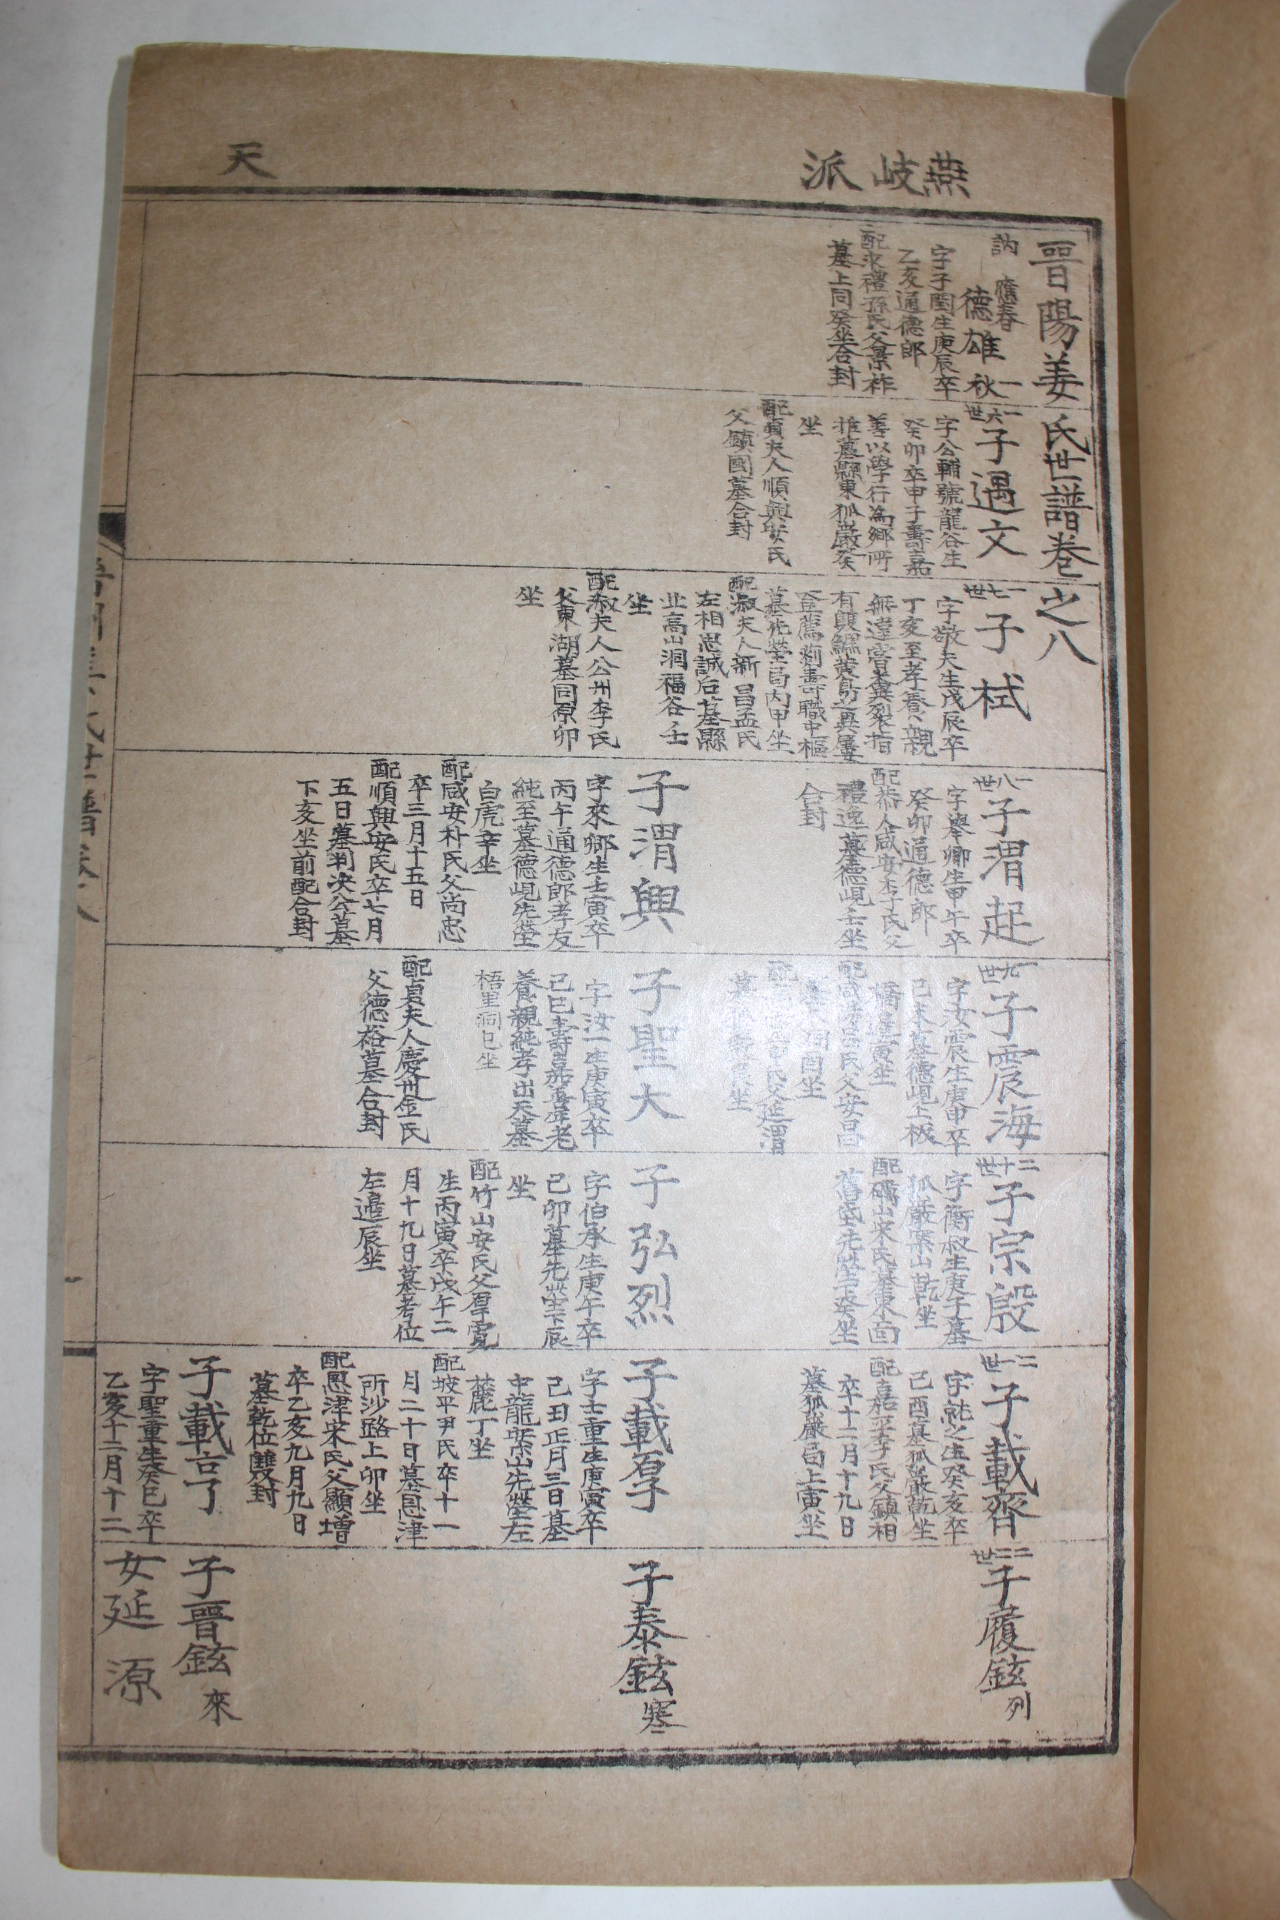 燕岐派
天
晉陽姜氏世譜卷之八
訥
應春
德雄 秋
字子圉生庚辰卒
乙亥通德郎
配求禮孫氏父景祚
墓上同癸坐合封
一六世
子遇文
字公輔號龍谷生
癸卯卒甲子壽嘉
善以學行為鄉所
推墓縣東狐巖癸
坐
配貞夫人順興安氏
父鎮國墓合封
一七世
子栻
字敬夫生戊辰卒
丁亥至孝養親
無違嘗糞裂指
登薦剡壽職中樞
墓先塋局內甲坐
配淑夫人新昌孟氏
左相思誠后墓縣
北高山洞福谷壬
坐
配淑夫人公州李氏
父東湖墓同原卯
坐
一八世
子渭起
字擧卿生甲午卒
癸卯通德郎
配恭人咸安李氏父
禮逸墓德峴壬坐
合封
子渭興
字來鄉生壬寅卒
丙午通德郎孝友
純至墓德峴先塋
白虎辛坐
配咸安朴氏父尚忠
卒三月十五日
配順興安氏卒七月
五日墓判決公墓
下亥坐前配合封
一九世
子震海
字汝震生庚申卒
己未墓德峴上板
橋越寅坐
子聖大
字汝一生庚寅卒
己巳壽嘉善孝老
養親純孝出天墓
梧里洞巳坐
配貞夫人慶州金氏
父德裕墓合封
二十世
子宗殷
字衡叔生庚子墓
狐巖案山乾坐
配礪山宋氏墓東面
舊垈先塋下癸坐
子弘烈
字伯承生庚午卒
己卯墓先塋下辰
坐
配竹山安氏父厚寬
生丙寅卒戊午二
月十九日墓考位
左邊辰坐
二一世
子載齊
字就之生癸亥卒
己酉墓狐巖乾坐
配嘉平李氏父鎮相
卒十二月十九日
墓狐巖局上寅坐
子載厚
字士重生庚寅卒
己丑正月三日墓
中龍案山先塋左
麓丁坐
配坡平尹氏卒十一
月二十日墓恩津
所沙路上卯坐
配恩津宋氏父顯增
卒乙亥九月九日
墓乾位雙封
子載亨
字聖重生癸巳卒
乙亥十二月十二
二二世
子履鉉 列
子泰鉉 寒
子晉鉉 來
女延源
晉州姜氏世譜卷八
一